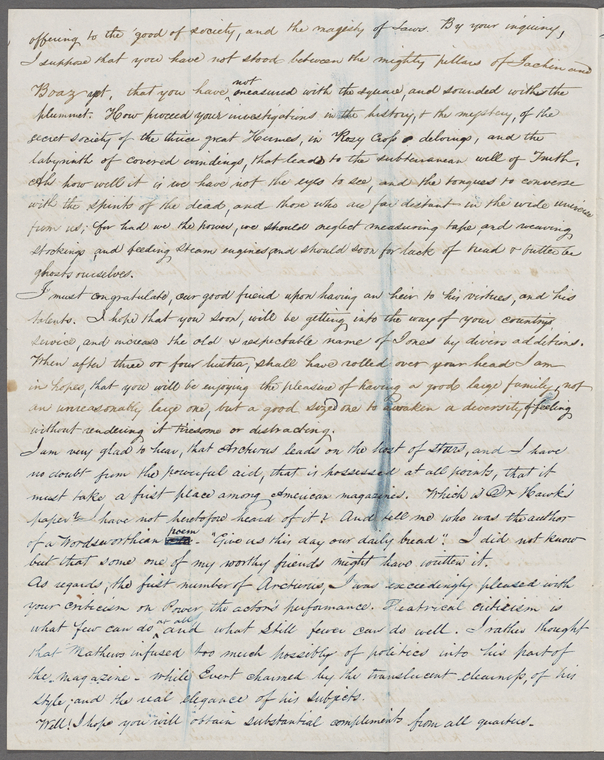 offering to the good of society, and the magesty of Laws. By your inquiry,
I suppose that you have not stood between the mighty pillars of Jachin and
Boaz yet, that you have not measured with the square, and sounded with the
plummet. How proceed your investigations in the history, & the mystery, of the
secret society of the thrice great Hermes, in Rosy Cross delvings, and the
labyrinth of covered windings, that leads to the subterranean well of Truth.
Ah how well it is we have not the eyes to see, and the tongues to converse
with the spirits of the dead, and those who are far distant in the wide universe
from us; for had we the power, we should neglect measuring tape and weaving
stockings and feeding steam engines and should soon for lack of bread & butter be
ghosts ourselves.
I must congratulate, our good friend upon having an heir to his virtues, and his
talents. I hope that you soon, will be getting into the way of your countrys
service, and increase the old & respectable name of Jones by divers additions.
When after three or four lustra, shall have rolled over your head I am
in hopes, that you will be enjoying the pleasure of having a good large family, not
an unreasonably large one, but a good sized one to awaken a diversity of feeling
without rendering it tiresome or distracting.
I am very glad to hear, that Arcturus leads on the host of stars, and I have
no doubt from the powerful aid, that is possessed at all points, that it
must take a first place among American magazines. Which is Dr Hawk's
paper? I have not heretofore heard of it? And tell me who was the author
of a Wordsworthian poem - "Give us this day our daily bread". I did not know
but that some one of my worthy friends might have written it.
As regards, the first number of Arcturus, I was exceedingly pleased with
your criticism on Power, the actor's performance. Theatrical criticism is
what few can do at all and what still fewer can do well. I rather thought
that Mathews infused too much possibly of politics into his part of
the magazine - while Evert charmed by the translucent clearness, of his
style, and the real elegance of his subjects.
Well! I hope you will obtain substantial compliments from all quarters.